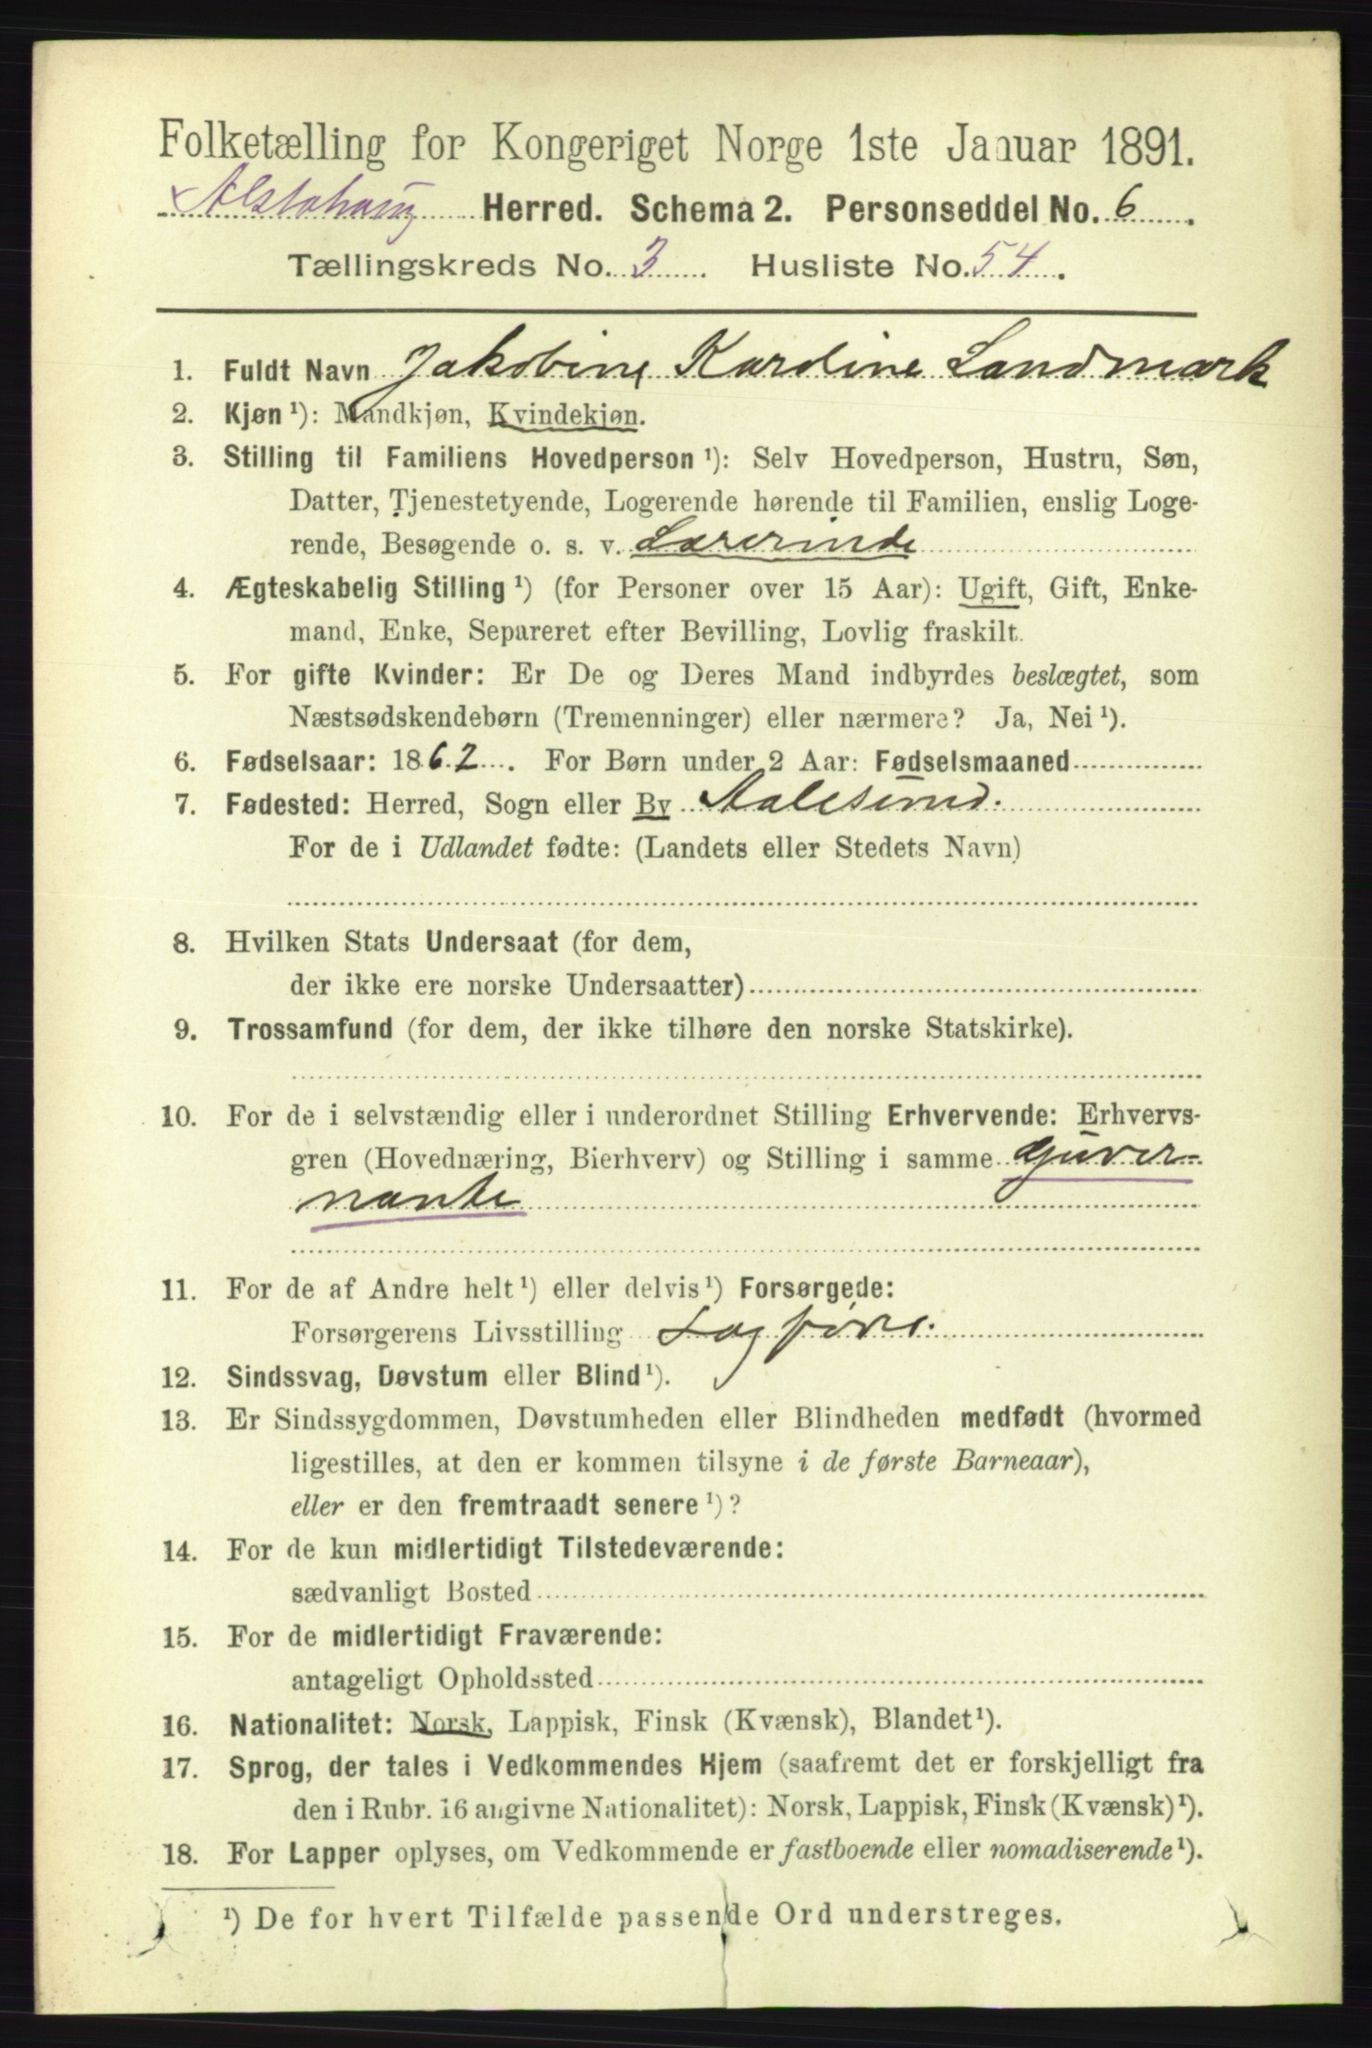 Folketælling for Kongeriget Norge 1ste Januar 1891.
Alstahaug Herred. Schema 2. Personseddel No. 6.
Tællingskreds No. 3 Husliste No. 54.
1. Fuldt Navn Jakobine Karoline Landmark
2. Kjøn ¹): Mandkjøn, Kvindekjøn.
3. Stilling til Familiens Hovedperson ¹): Selv Hovedperson, Hustru, Søn,
Datter, Tjenestetyende, Logerende hørende til Familien, enslig Loge-
rende, Besøgende o. s. v. Lærerinde
4. Ægteskabelig Stilling ¹) (for Personer over 15 Aar): Ugift, Gift, Enke-
mand, Enke, Separeret efter Bevilling, Lovlig fraskilt.
5. For gifte Kvinder: Er De og Deres Mand indbyrdes beslægtet, som
Næstsødskendebørn (Tremenninger) eller nærmere? Ja, Nei ¹).
6. Fødselsaar: 1862. For Børn under 2 Aar: Fødselsmaaned
7. Fødested: Herred, Sogn eller By Aalesund.
For de i Udlandet fødte: (Landets eller Stedets Navn)
8. Hvilken Stats Undersaat (for dem,
der ikke ere norske Undersaatter)
9. Trossamfund (for dem, der ikke tilhøre den norske Statskirke).
10. For de i selvstændig eller i underordnet Stilling Erhvervende: Erhvervs-
gren (Hovednæring, Bierhverv) og Stilling i samme Guver-
nante
11. For de af Andre helt ¹) eller delvis ¹) Forsørgede:
Forsørgerens Livsstilling Sagføre.
12. Sindssvag, Døvstum eller Blind ¹).
13. Er Sindssygdommen, Døvstumheden eller Blindheden medfødt (hvormed
ligestilles, at den er kommen tilsyne i de første Barneaar),
eller er den fremtraadt senere ¹)?
14. For de kun midlertidigt Tilstedeværende:
sædvanligt Bosted
15. For de midlertidigt Fraværende:
antageligt Opholdssted
16. Nationalitet: Norsk, Lappisk, Finsk (Kvænsk), Blandet ¹).
17. Sprog, der tales i Vedkommendes Hjem (saafremt det er forskjelligt fra
den i Rubr. 16 angivne Nationalitet): Norsk, Lappisk, Finsk (Kvænsk) ¹).
18. For Lapper oplyses, om Vedkommende er fastboende eller nomadiserende ¹).
¹) De for hvert Tilfælde passende Ord understreges.